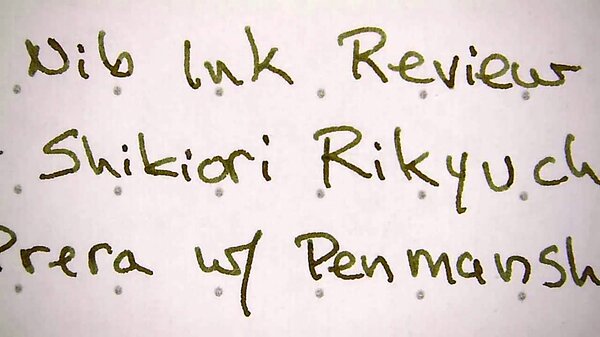 Nib Ink Review
Shikiori Rikyuch
Prera w/ Penmansh